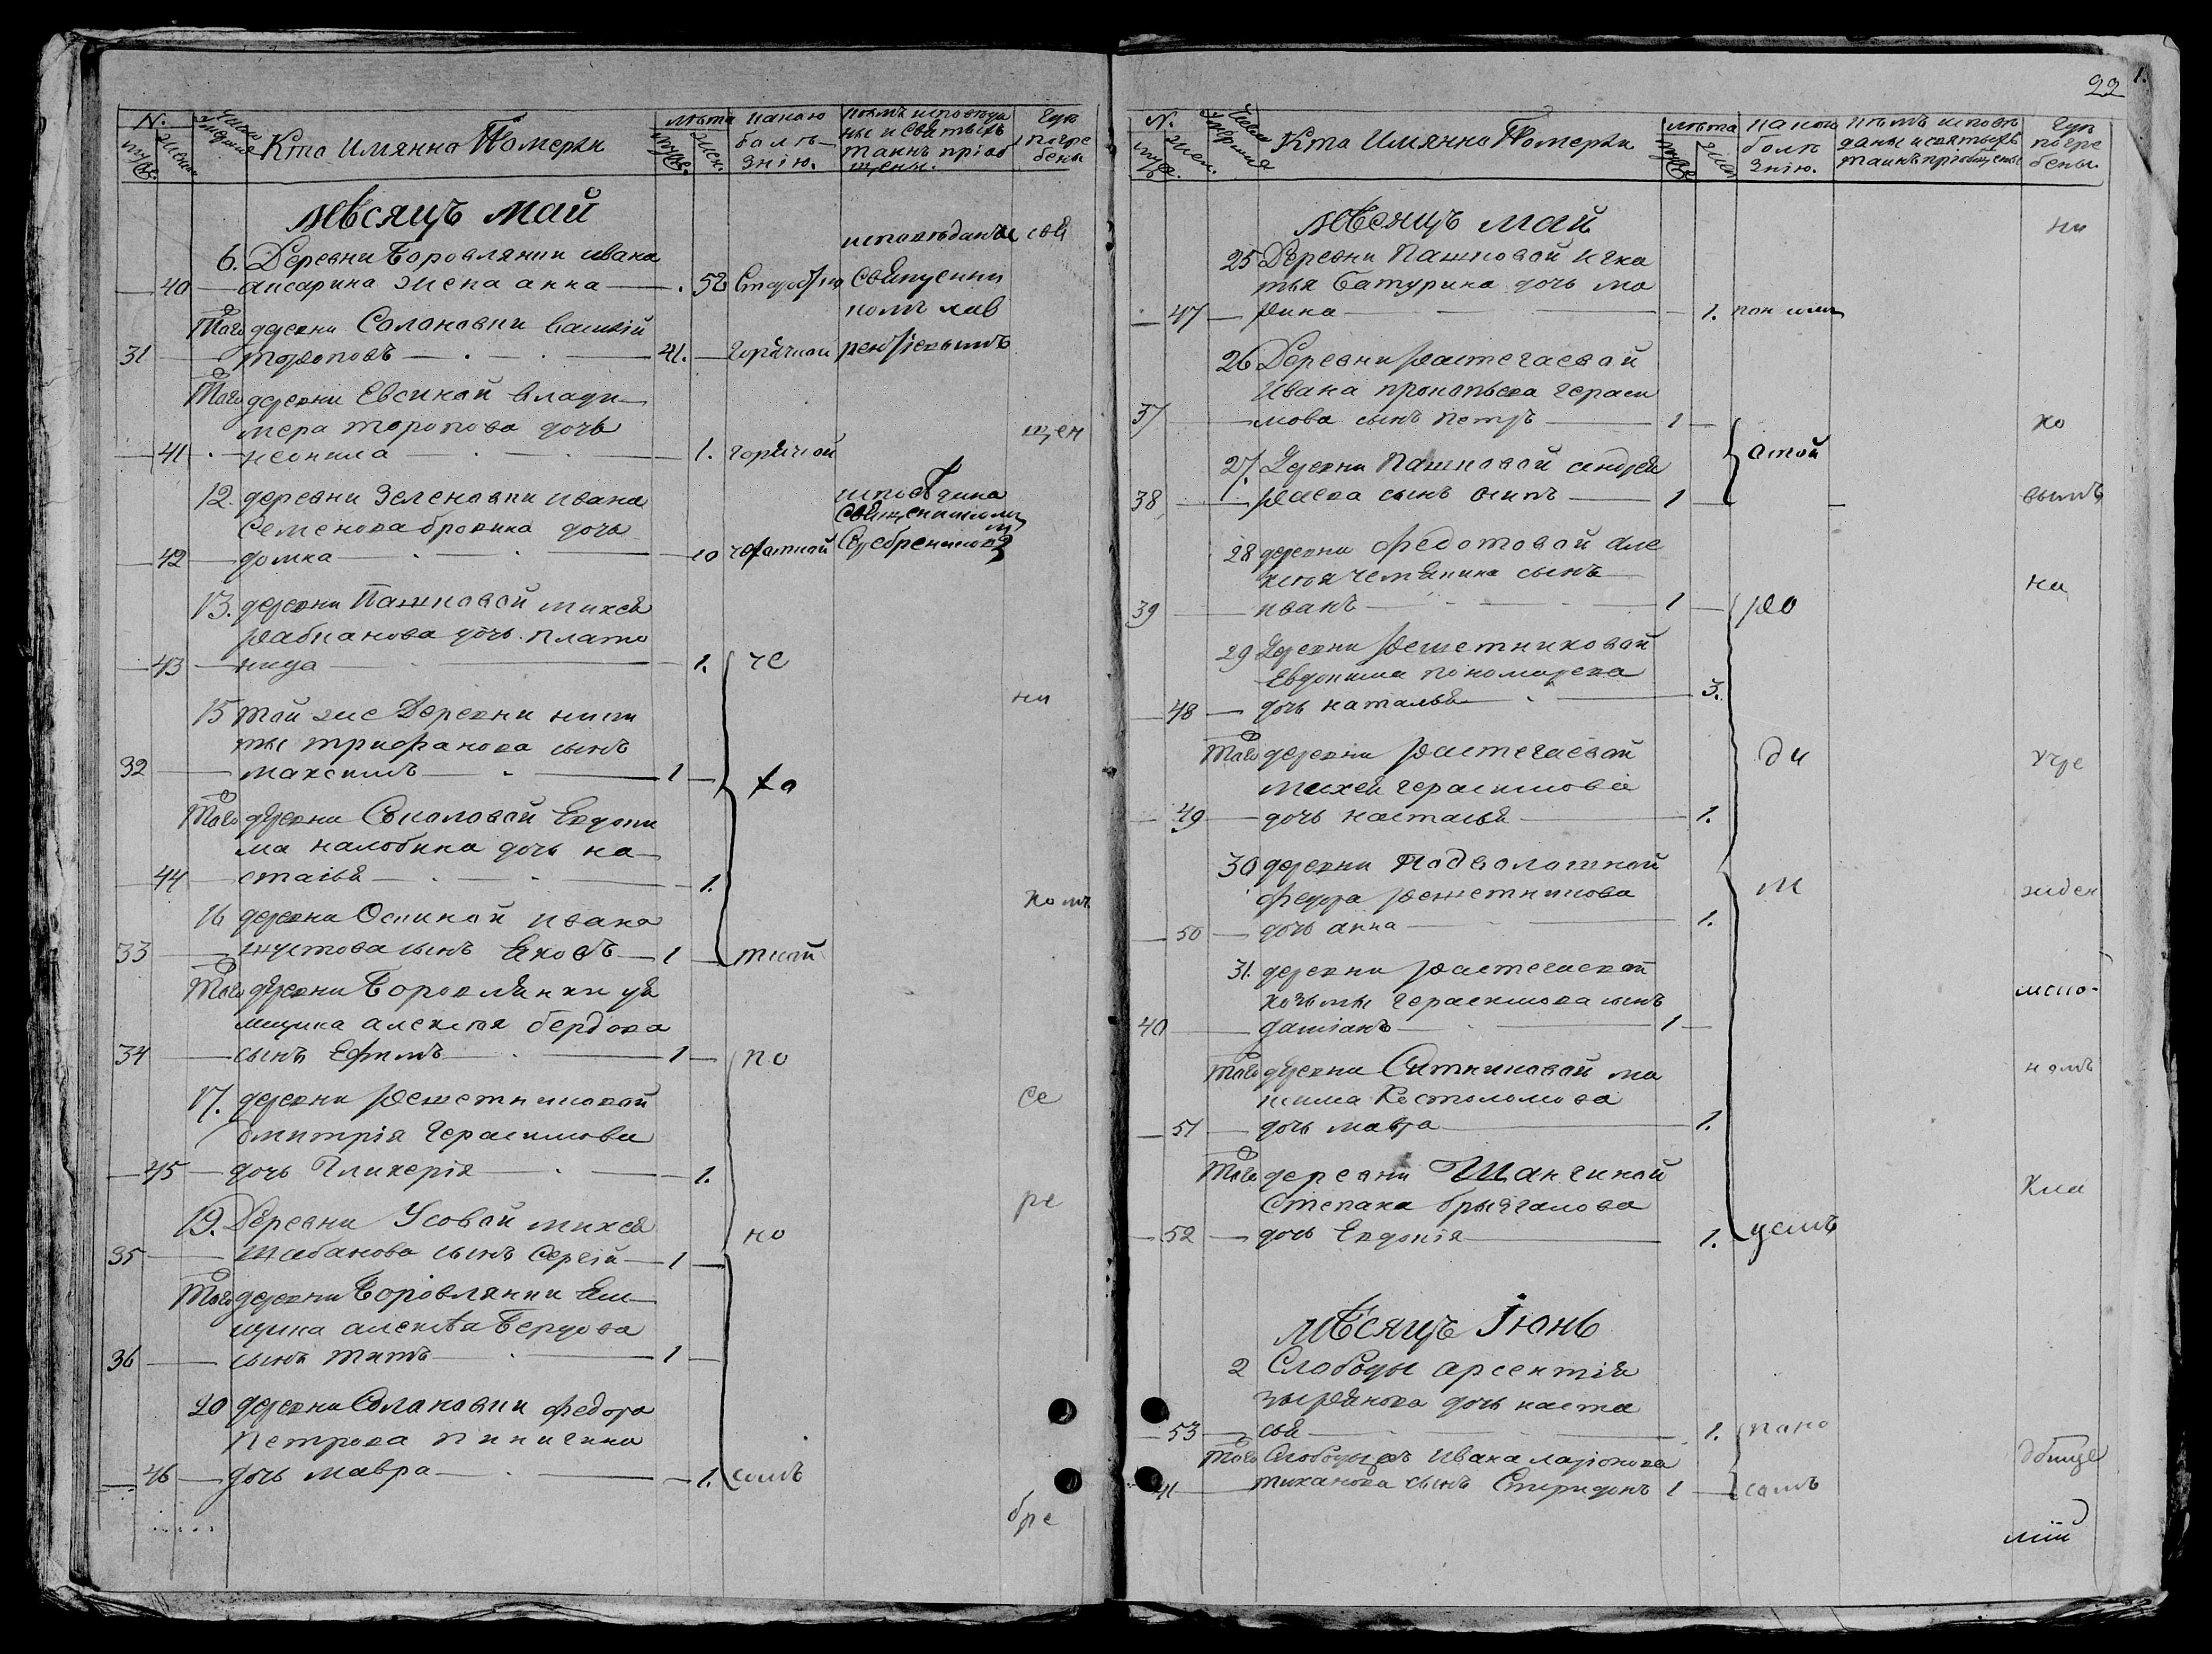 22
N.
муж.
жен.
Число умертвия
Кто Имянно Померли
лѣта
муж.
жен.
какою
болѣ
знію.
кѣмъ исповѣда
ны и святыхъ
таинъ пріоб
щены.
Гдѣ
погре
бены
мѣсяцъ май
6. Деревни Боровлянки ивана
40 аксарина жена анна 52 Старостію
исповѣданы свя
священни
комъ лав
рентіевымъ
Того деревни Солоновки василій
31 тороповъ 41. горячкой
Того деревни Евсиной влади
мера торопова дочь
41 неонила 1. горячкой
щен
12. деревни Зеленовки ивана
Семенова бровина дочь
42 домна 10 чахоткой
священникомъ
Серебренниковым
13. деревни Пашковой михея
дочь плато
43 нида 1. че
ни
15 той же Деревни ники
ты трифанова сынъ
32 максимъ 1 хо
Того деревни Соколовой Евдоки
ма налобина дочь на
44 стасья 1.
комъ
16 деревни Осиной ивана
33 шустова сынъ Яковъ 1 ткой
Того деревни Боровлянки ям
щика алексѣя бердова
34 сынъ Ефимъ 1 по
17. деревни Решетниковой
дмитрія Герасимова
45 дочь Гликерія 1.
се
19. Деревни Усовой михея
35 шабанова сынъ Сергій 1
но
ре
Того деревни Боровлянки Ям
щика алексѣя Бердова
36 сынъ титъ 1
20 деревни Солоновки федора
Петрова пинигина
46 дочь мавра 1. сомъ
бре
N.
муж.
жен.
Число умертвия
Кто Имянно Померли
лѣта
муж.
жен.
какою
болѣ
знію.
кѣмъ исповѣ
даны и святыхъ
таинъ пріобщены
Гдѣ
погре
бены.
мѣсяцъ май
ни
25 Деревни Пашковой игна
тья Батурина дочь ма
47 рина 1. поносом
26 Деревни Растегаевой
Ивана прокопьева гераси
37 мова сынъ петръ 1
ко
27. Деревни Пашковой андрея
38 раева сынъ осипъ 1
отой
вымъ
28 деревни Федотовой але
ксѣя чемякина сынъ
39 иванъ 1 ро
на
29 Деревни Решетниковой
Евдокима пономарева
48 дочь наталья 3.
Того деревни Растегаевой
михея герасимова
49 дочь настасья 1.
ди
учре
30 деревни Подволошной
федора решетникова
50 дочь анна 1.
м
жден
31. деревни растегаевой
козьмы герасимова сынъ
40 даміанъ 1
мено-
Того деревни Ситниковой ма
ксима Костоломова
51 дочь мавра 1.
номъ
Того деревни Шанчиной
Степана брызгалова
52 дочь Евдокія 1. цемъ
кла
мѣсяцъ Іюнь
2 Слободы арсентія
зырянова дочь наста
53 сья 1. поно
Того Слободы Ивана ларіонова
41 тиханова сынъ Спиридонъ 1 сомъ
дбище
міи